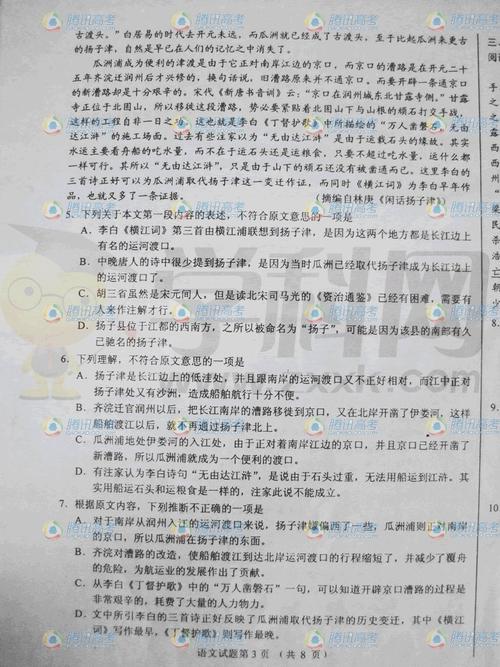 古渡头。”白居易的时代去开元未远，而瓜洲就已经成了古渡头，至于比起瓜洲来更古
的扬子津，自然是早已在人们的记忆之中消失了。
瓜洲浦成为便利的津渡是由于它正对南岸江边的京口，而京口的漕路是在开元二十
五年齐浣迁润州后才兴修的，换句话说，旧漕路原来并不通京口。而要开辟一条通京口
的新漕路却是十分艰辛的。宋代《新唐书音训》云：“京口在润州城东北甘露寺侧。”甘露
寺正位于北固山，所以移徙这段漕路，势必要紧贴着北固山下与山根的顽石打交手战，
这样的工程自非一日之功。这也就是李白《丁督护歌》中所描绘的“万人凿磐石，无由
达江浒”的施工场面。过去有些注家以为“无由达江浒”是由于运载石头的缘故。其实
水运主要看舟船的吃水量，而不在于运石头还是运粮食，只要不超过吃水量，运什么都
一样可行。其所以“无由达江浒”，只是由于山下的顽石还没有被凿通而已。这里李白的
三首诗正好可以为瓜洲浦取代扬子津这一变迁作证，而同时《横江词》为李白早年作
品，也就又多了一个佐证了。
（摘编自林庚《闲话扬子津》）
5．下列关于本文第一段内容的表述，不符合原文意思的一项是
A．李白《横江词》第三首由横江浦联想到扬子津，是因为这两个地方都是长江边上
有名的运河渡口。
B．中晚唐人的诗中很少提到扬子津，是因为当时瓜洲已经取代扬子津成为长江边上
的运河渡口了。
C．胡三省虽然是宋元间人，但是读北宋司马光的《资治通鉴》已经有困难，需要有
人来作注解才行。
D．扬子县位于江都的西南方，之所以被命名为“扬子”，可能是因为该县的南部有久
已驰名的扬子津。
6．下列理解，不符合原文意思的一项是
A．扬子津是长江边上的低洼处，并且跟南岸的运河渡口又不正好相对，而江中正对
扬子津处又有沙洲，造成船舶航行十分不便。
B．齐浣迁官润州以后，把长江南岸的漕路移徙到京口，又在北岸开凿了伊娄河，这样
船舶渡江以后，就不再通过扬子津北上。
C．瓜洲浦地处伊娄河的入江处，由于正对着南岸江边的京口，并且京口已经开凿了
新漕路，所以瓜洲浦就成为一个便利的渡口。
D．有注家认为李白诗句“无由达江浒”，是说由于石头过重，无法用船运到江浒。其
实用船运石头和运粮食是一样的，注家此说不能成立。
7．根据原文内容，下列推断不正确的一项是
A．对于南岸从润州入江的运河渡口来说，扬子津罐偏西了一些，瓜洲浦则正对南岸
的京口，所以瓜洲浦在扬子津的东面。
B．齐浣对漕路的改造，使船舶渡江到达北岸运河渡口的行程缩短了，并减少了覆舟
的危险，为航运业的发展作出了贡献。
C．从李白《丁督护歌》中的“万人凿磐石”一句，可以知道开辟京口漕路的过程是
非常艰辛的，耗费了大量的人力物力。
D．文中所引李白的三首诗正好反映了瓜洲浦取代扬子津的历史变迁，其中《横江
词》写作最早，《丁督护歌》则写作最晚。
语文试题第3页（共8页）